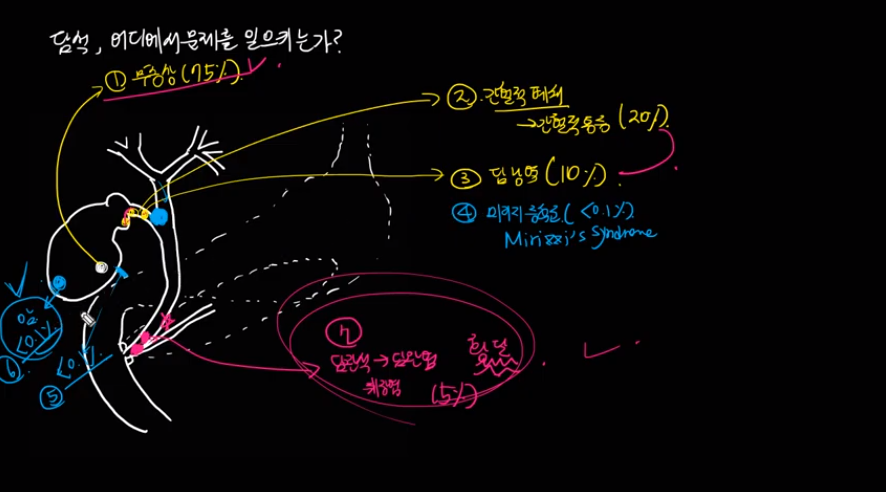 담석, 어디에서 문제를 일으키는가?
① 무증상 (75%)
② 간헐적 폐쇄
→ 간헐적 통증 (20%)
③ 담낭염 (10%)
④ 미리지 증후군 (<0.1%)
Mirizzi's Syndrome
암
<0.1%
⑥
<0.1%
⑤
⑦
담관석 → 담관염
췌장염 (5%)
황달